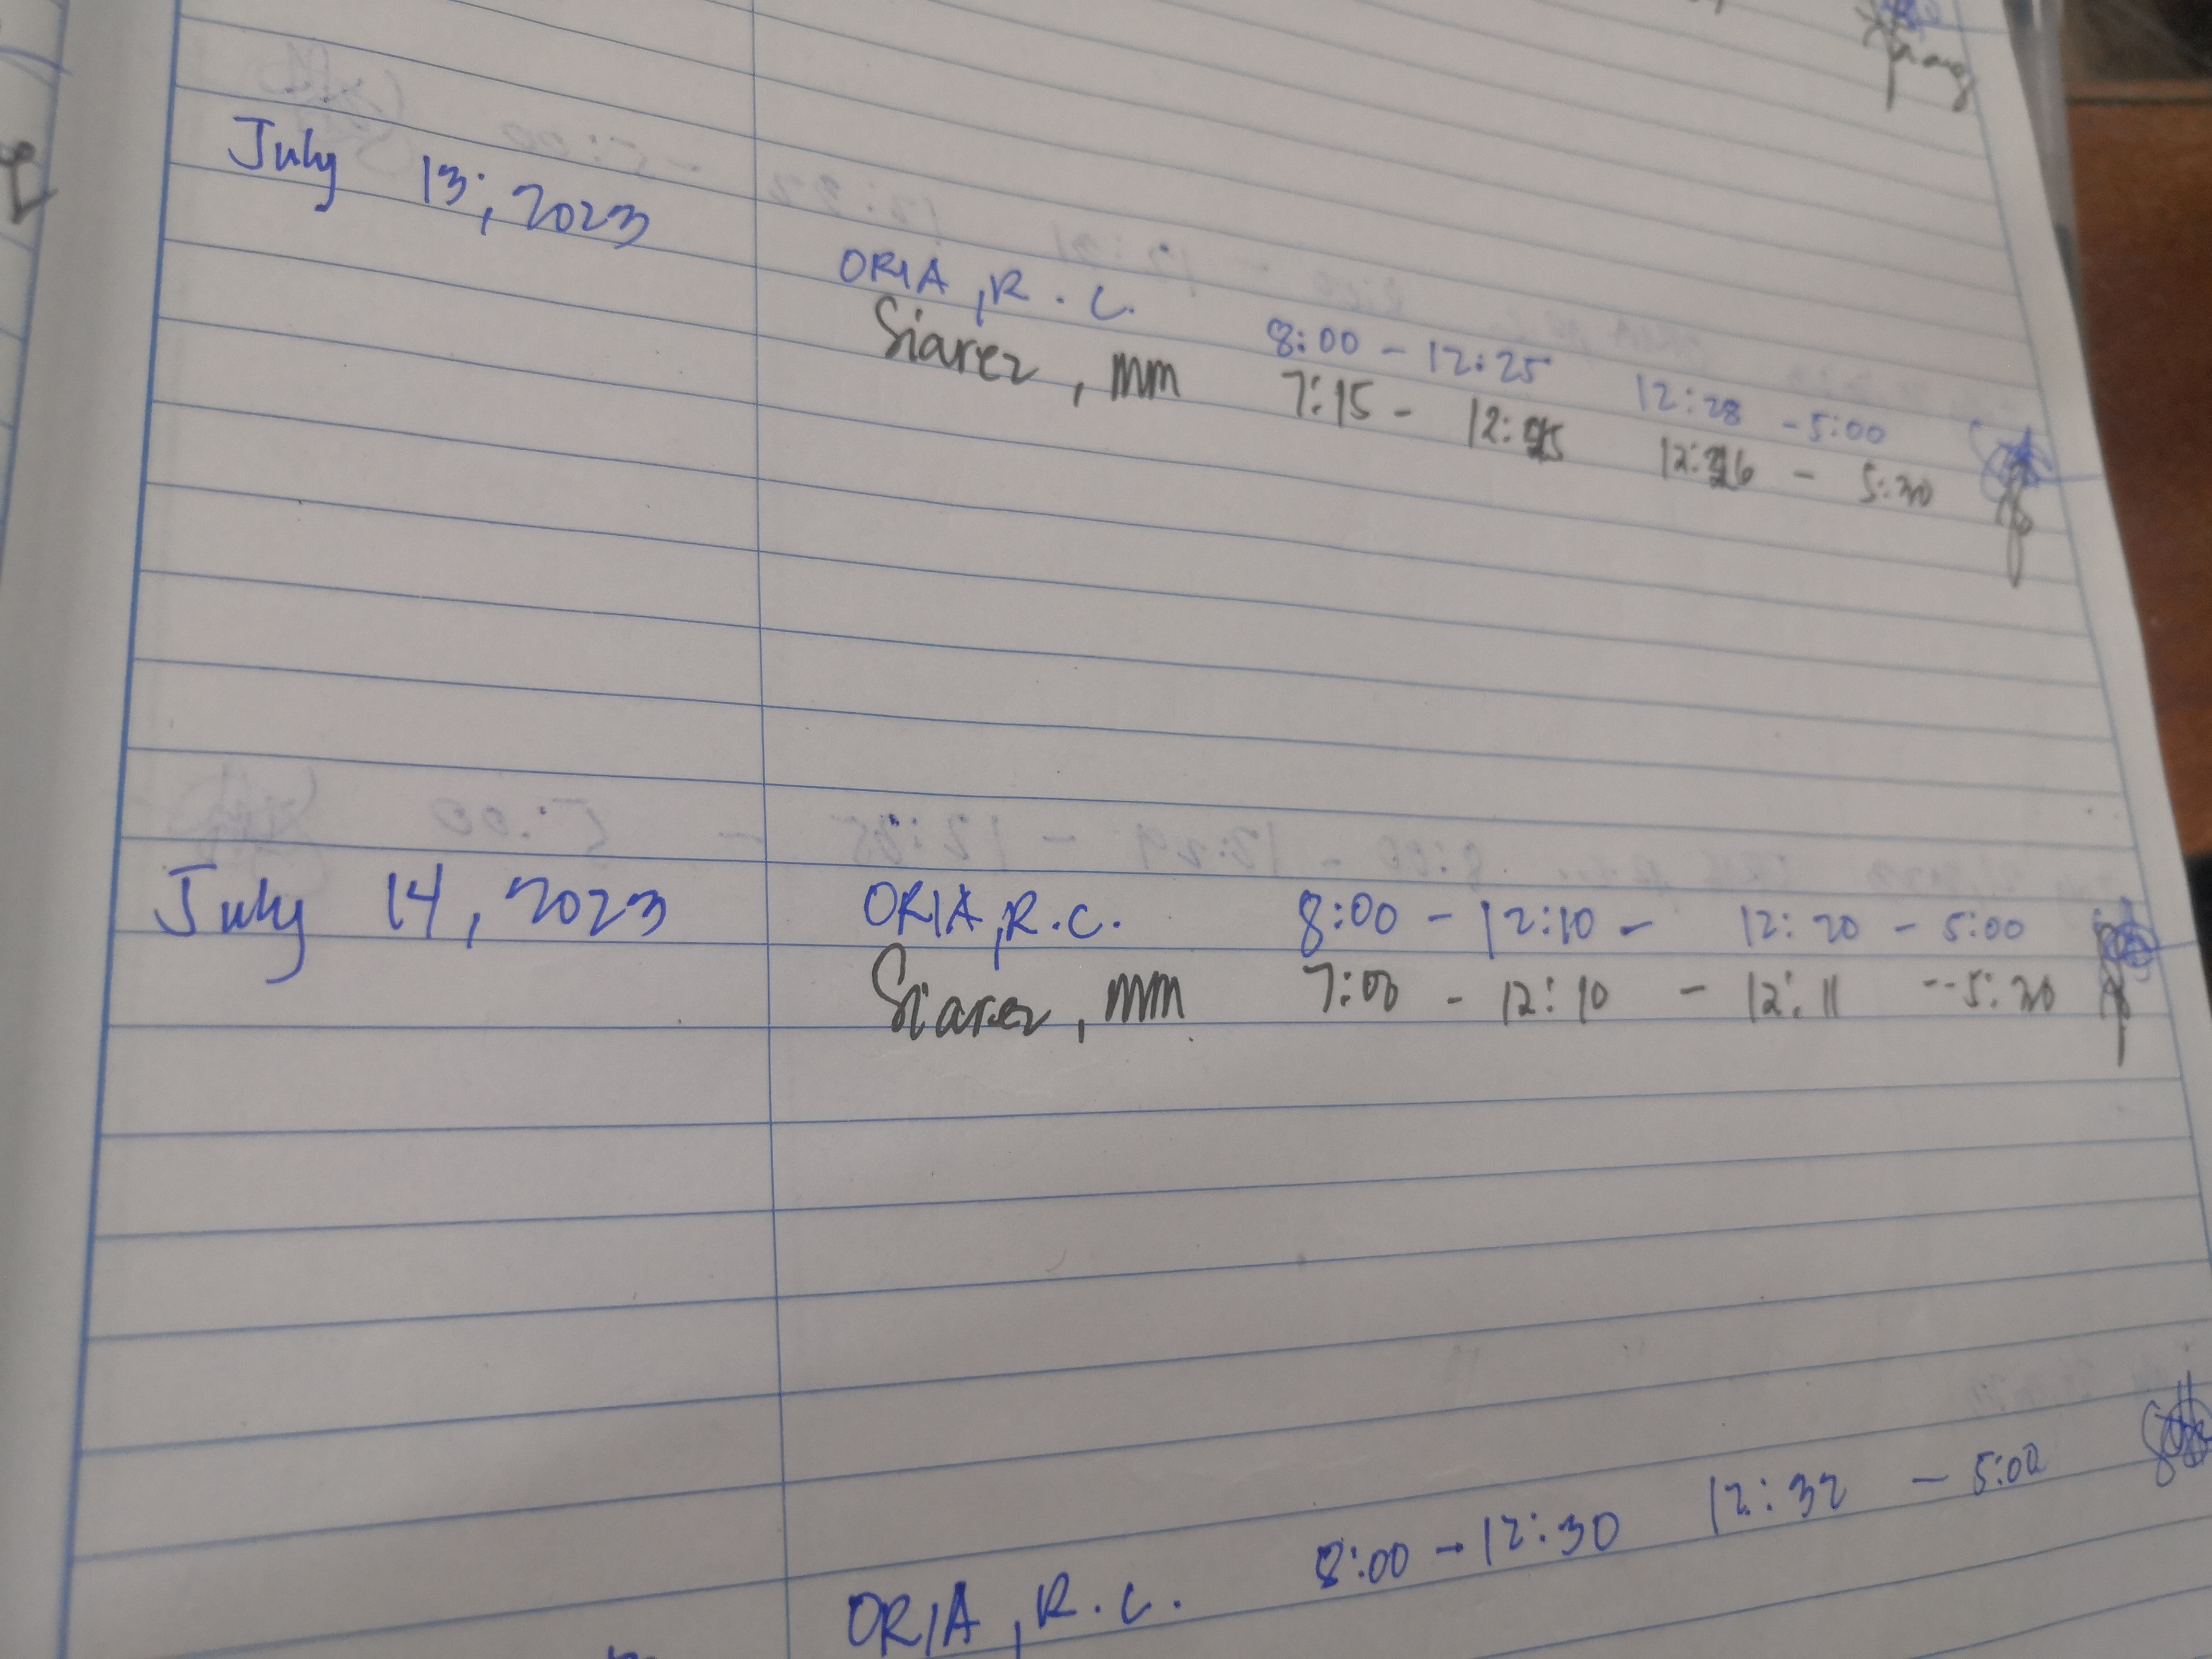 July 13, 2023
ORIA, R.C. 8:00 - 12:25 12:28 - 5:00
Siarez, mm 7:15 - 12:25 12:26 - 5:30
July 14, 2023 ORIA, R.C. 8:00 - 12:10 - 12:20 - 5:00
Siarez, mm 7:00 - 12:10 - 12:11 - 5:30
ORIA, R.C. 8:00 - 12:30 12:32 - 5:00